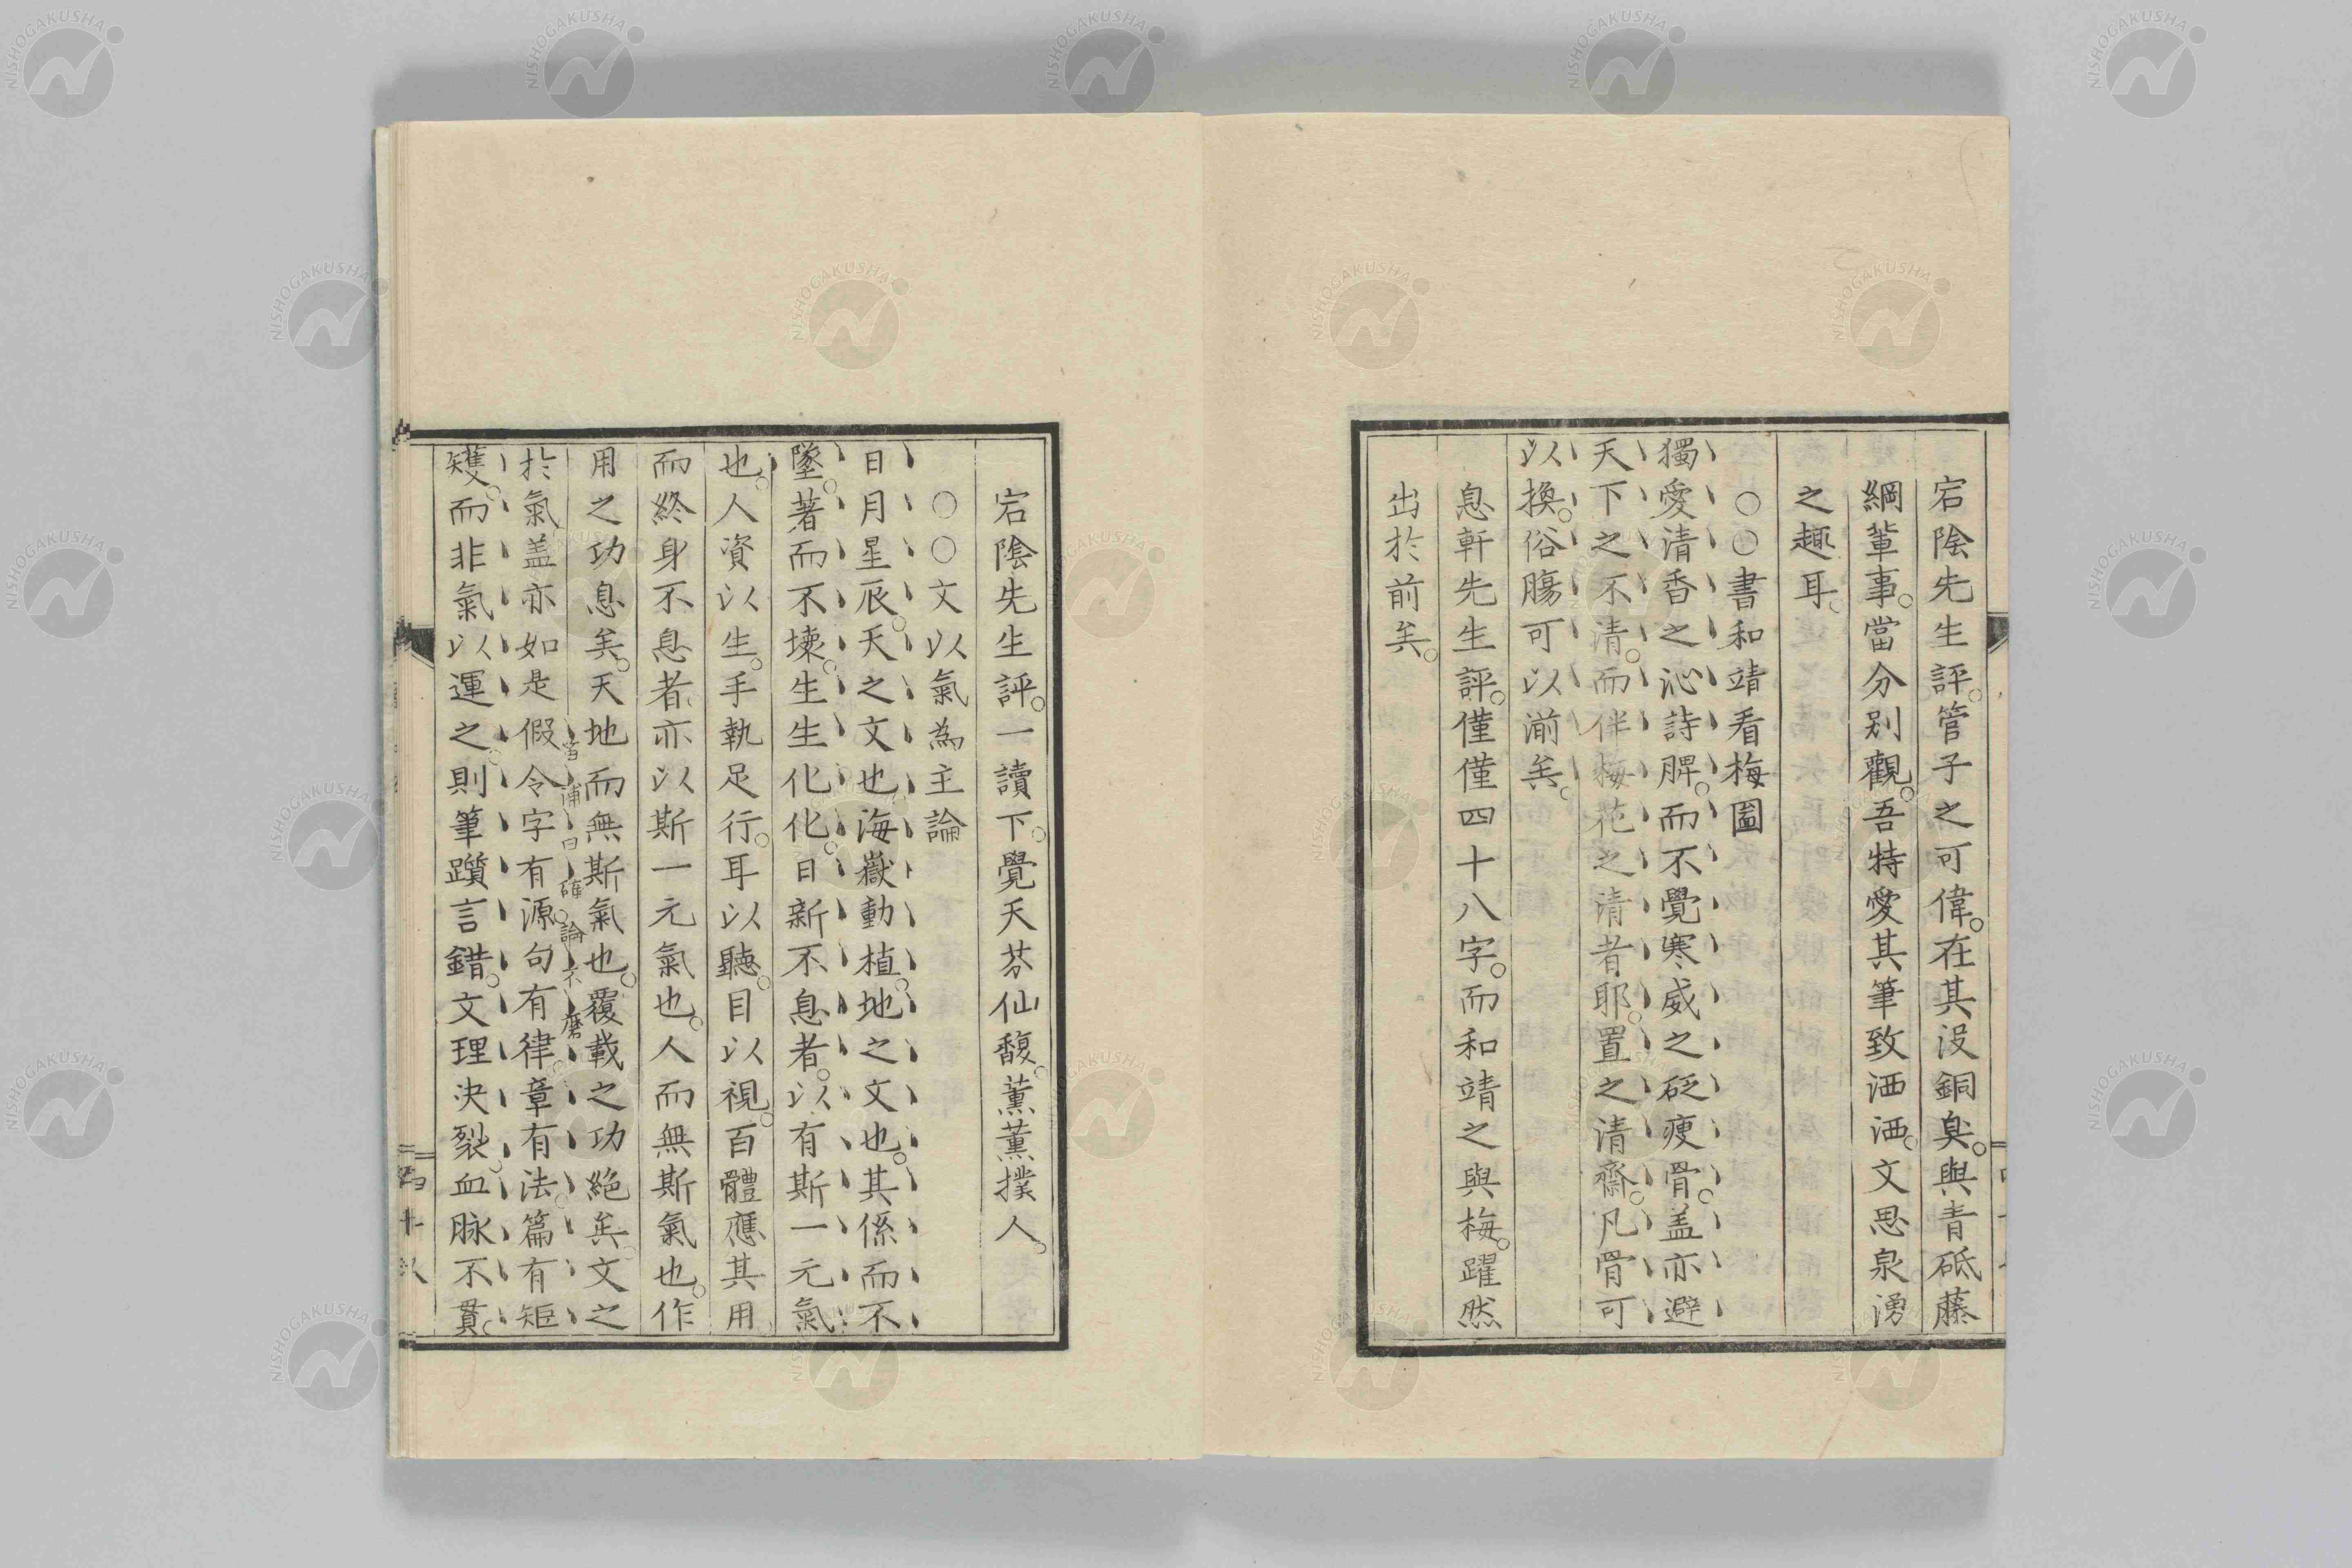 宕陰先生評。管子之可偉。在其没銅臭。與青砥藤
綱輩事。當分别觀。吾特愛其筆致洒洒。文思泉湧
之趣耳。
○○書和靖看梅圖
獨愛清香之沁詩脾。而不覺寒威之砭痩骨。盖亦避
天下之不清。而伴梅花之清者耶。置之清齋。凡骨可
以換。俗腸可以湔矣。
息軒先生評。僅僅四十八字。而和靖之與梅。躍然
出於前矣。
宕陰先生評。一讀下。覺天芬仙馥。薫薫撲人。
○○文以氣為主論
日月星辰。天之文也海嶽動植。地之文也。其係而不
墜。著而不壊。生生化化。日新不息者。以有斯一元氣
也。人資以生。手執足行。耳以聽。目以視。百體應其用
而終身不息者。亦以斯一元氣也。人而無斯氣也。作
用之功息矣。天地而無斯氣也。覆載之功絶矣。文之
雪浦曰確論不磨
於氣。盖亦如是假令字有源。句有律章有法。篇有矩
矱。而非氣以運之。則筆躓言錯。文理决裂。血脉不貫。
四十八
NISHOGAKUSHA